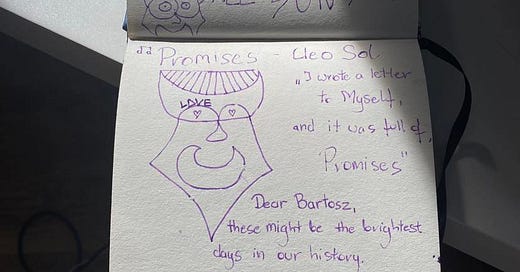 Promises - Cleo Sol
LOVE
„I wrote a letter
to Myself,
and it was full of,
Promises"
Dear Bartosz,
these might be the brightest
days in our history.